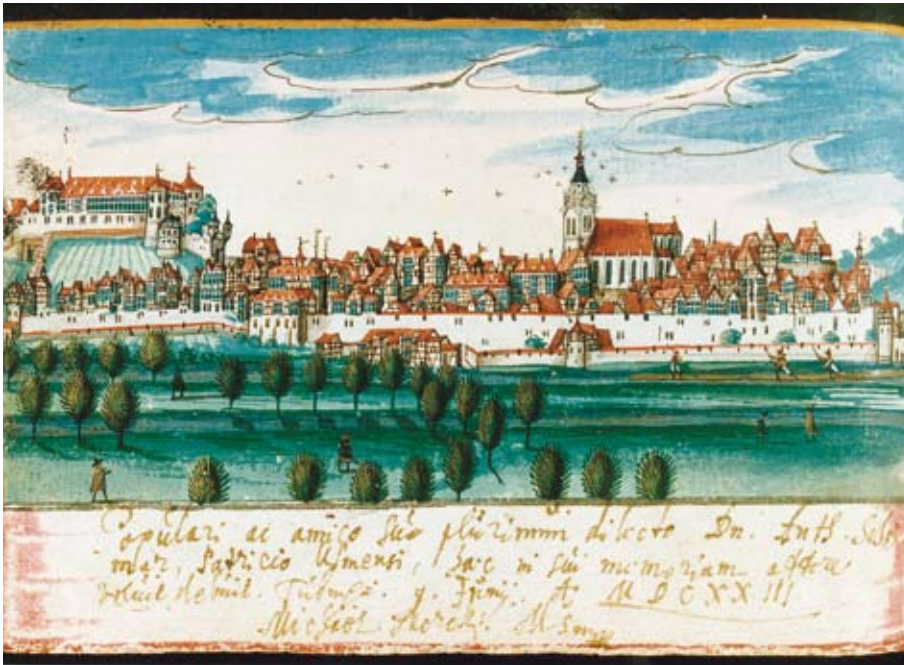 Populari ac amico suo plurimum dilecto Dn. Anth.
Patricio Ulmensi, haec in sui memoriam
voluit debuit. Tubingae. 9. Junij. A MDCXXIII
Michael